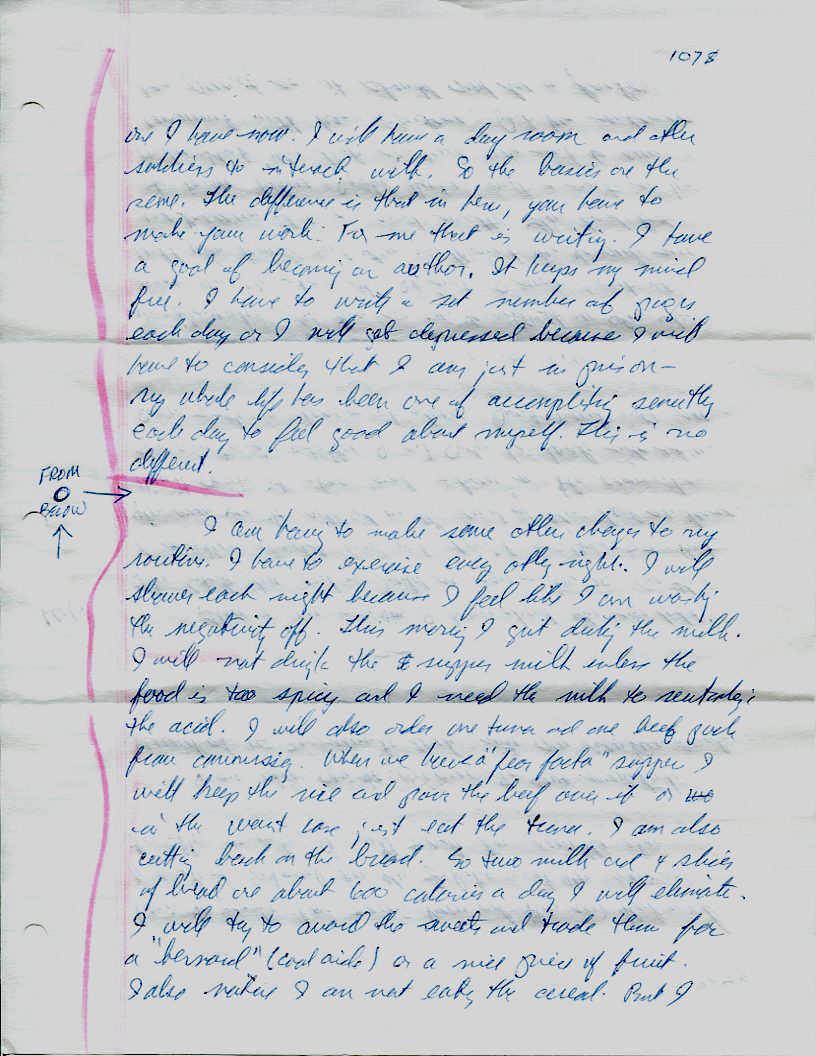 1078
one I have now. I will have a day room and other
soldiers to interact with. So the basics are the
same. The difference is that in here, you have to
make your work. For me that is writing. I have
a goal of becoming an author. It keeps my mind
free. I have to write a set number of pages
each day or I will get depressed because I will
have to consider that I am just in prison-
My whole life has been one of accomplishing something
each day to feel good about myself. This is no
different.
FROM
BELOW
I am having to make some other changes to my
routine. I have to exercise every other night. I will
shower each night because I feel like I am washing
the negativity off. This morning I quit drinking the milk.
I will not drink the supper milk unless the
food is too spicy and I need the milk to neutralize
the acid. I will also order one tuna and one beef pack
from commissary. When we have a "fear factor" supper I
will keep the rice and pour the beef over it or
in the worst case, just eat the tuna. I am also
cutting back on the bread. So two milk and 4 slices
of bread are about 600 calories a day I will eliminate.
I will try to avoid the sweets and trade them for
a "bernard" (cool aide) or a nice piece of fruit.
I also notice I am not eating the cereal. But I